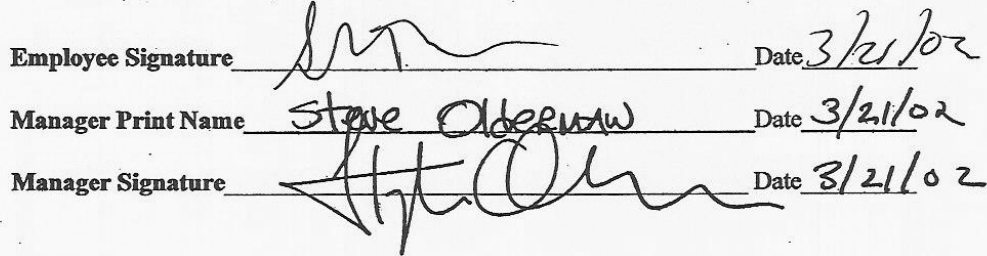 Employee Signature Date 3/21/02
Manager Print Name Steve Olderman Date 3/21/02
Manager Signature Date 3/21/02